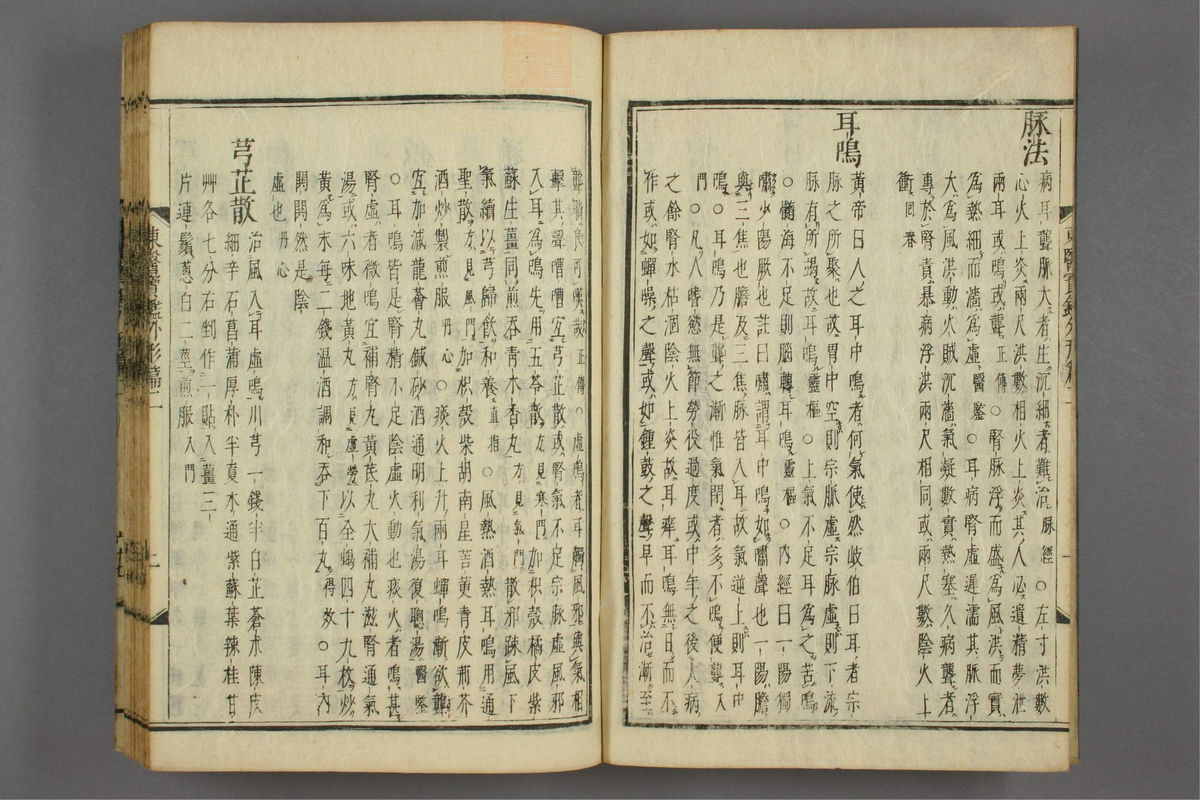 脉法
病耳聾脉大者生沉細者難治脉經○左寸洪數
心火上炎兩尺洪數相火上炎其人必遺精夢泄
兩耳或鳴或聾正傳○腎脉浮而盛爲風洪而實
爲熱細而濇爲虛醫鑒○耳病腎虛遲濡其脉浮
大爲風洪動火賊沉濇氣凝數實熱塞久病聾者
專於腎責暴病浮洪兩尺相同或兩尺數陰火上
衝回春
耳鳴
黃帝曰人之耳中鳴者何氣使然岐伯曰耳者宗
脉之所聚也故胃中空則宗脉虛虛則下流
脉有所竭故耳鳴靈樞○上氣不足耳爲之苦鳴
○髓海不足則腦轉耳鳴靈樞○內經曰一陽獨
嘯少陽厥也註曰嘯謂耳中鳴如嘯聲也一陽膽
與三焦也膽及三焦脉皆入耳故氣逆上則耳中
鳴○耳鳴乃是聾之漸惟氣閉者多不鳴便聾入
門○凡人嗜慾無節勞役過度或中年之後大病
之餘腎水枯涸陰火上炎故耳痒耳鳴無日而不
作或如蟬噪之聲或如鍾鼓之聲早而不治漸至
聾聵良可嘆哉正傳○虛鳴者耳觸風邪與氣相
擊其聲嘈嘈宜芎芷散或腎氣不足宗脉虛風邪
入耳爲鳴先用五苓散方見寒門加枳殼橘皮柴
蘇生薑同煎吞青木香丸方見氣門散邪踈風下
氣續以芎歸飮和養直指○風熱酒熱耳鳴用通
聖散方見風門加枳殼柴胡南星桔更青皮荊芥
酒炒製煎服丹心○痰火上升兩耳蟬鳴漸欲聾
宜加減龍薈丸鍼砂酒通明利氣湯復聰湯醫鑒
○耳鳴皆是腎精不足陰虛火動也痰火者鳴甚
腎虛者微鳴宜補腎丸黃芪丸大補丸滋腎通氣
湯或六味地黃丸方見虛勞以全蝎四十九枚炒
黃爲末每二錢溫酒調和吞下百丸得效○耳內
閧閧然是陰
虛也丹心
芎芷散
治風入耳虛鳴川芎一錢半白芷蒼朮陳皮
細辛石菖蒲厚朴半夏木通紫蘇葉辣桂甘
艸各七分右剉作一貼入薑三
片連鬚蔥白二莖煎服入門
東醫寶鑑外形篇二
上